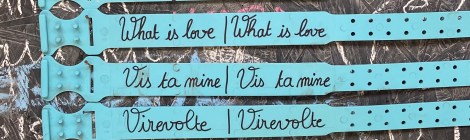 What is love | What is love
Vis ta mine | Vis ta mine
Virevolte | Virevolte